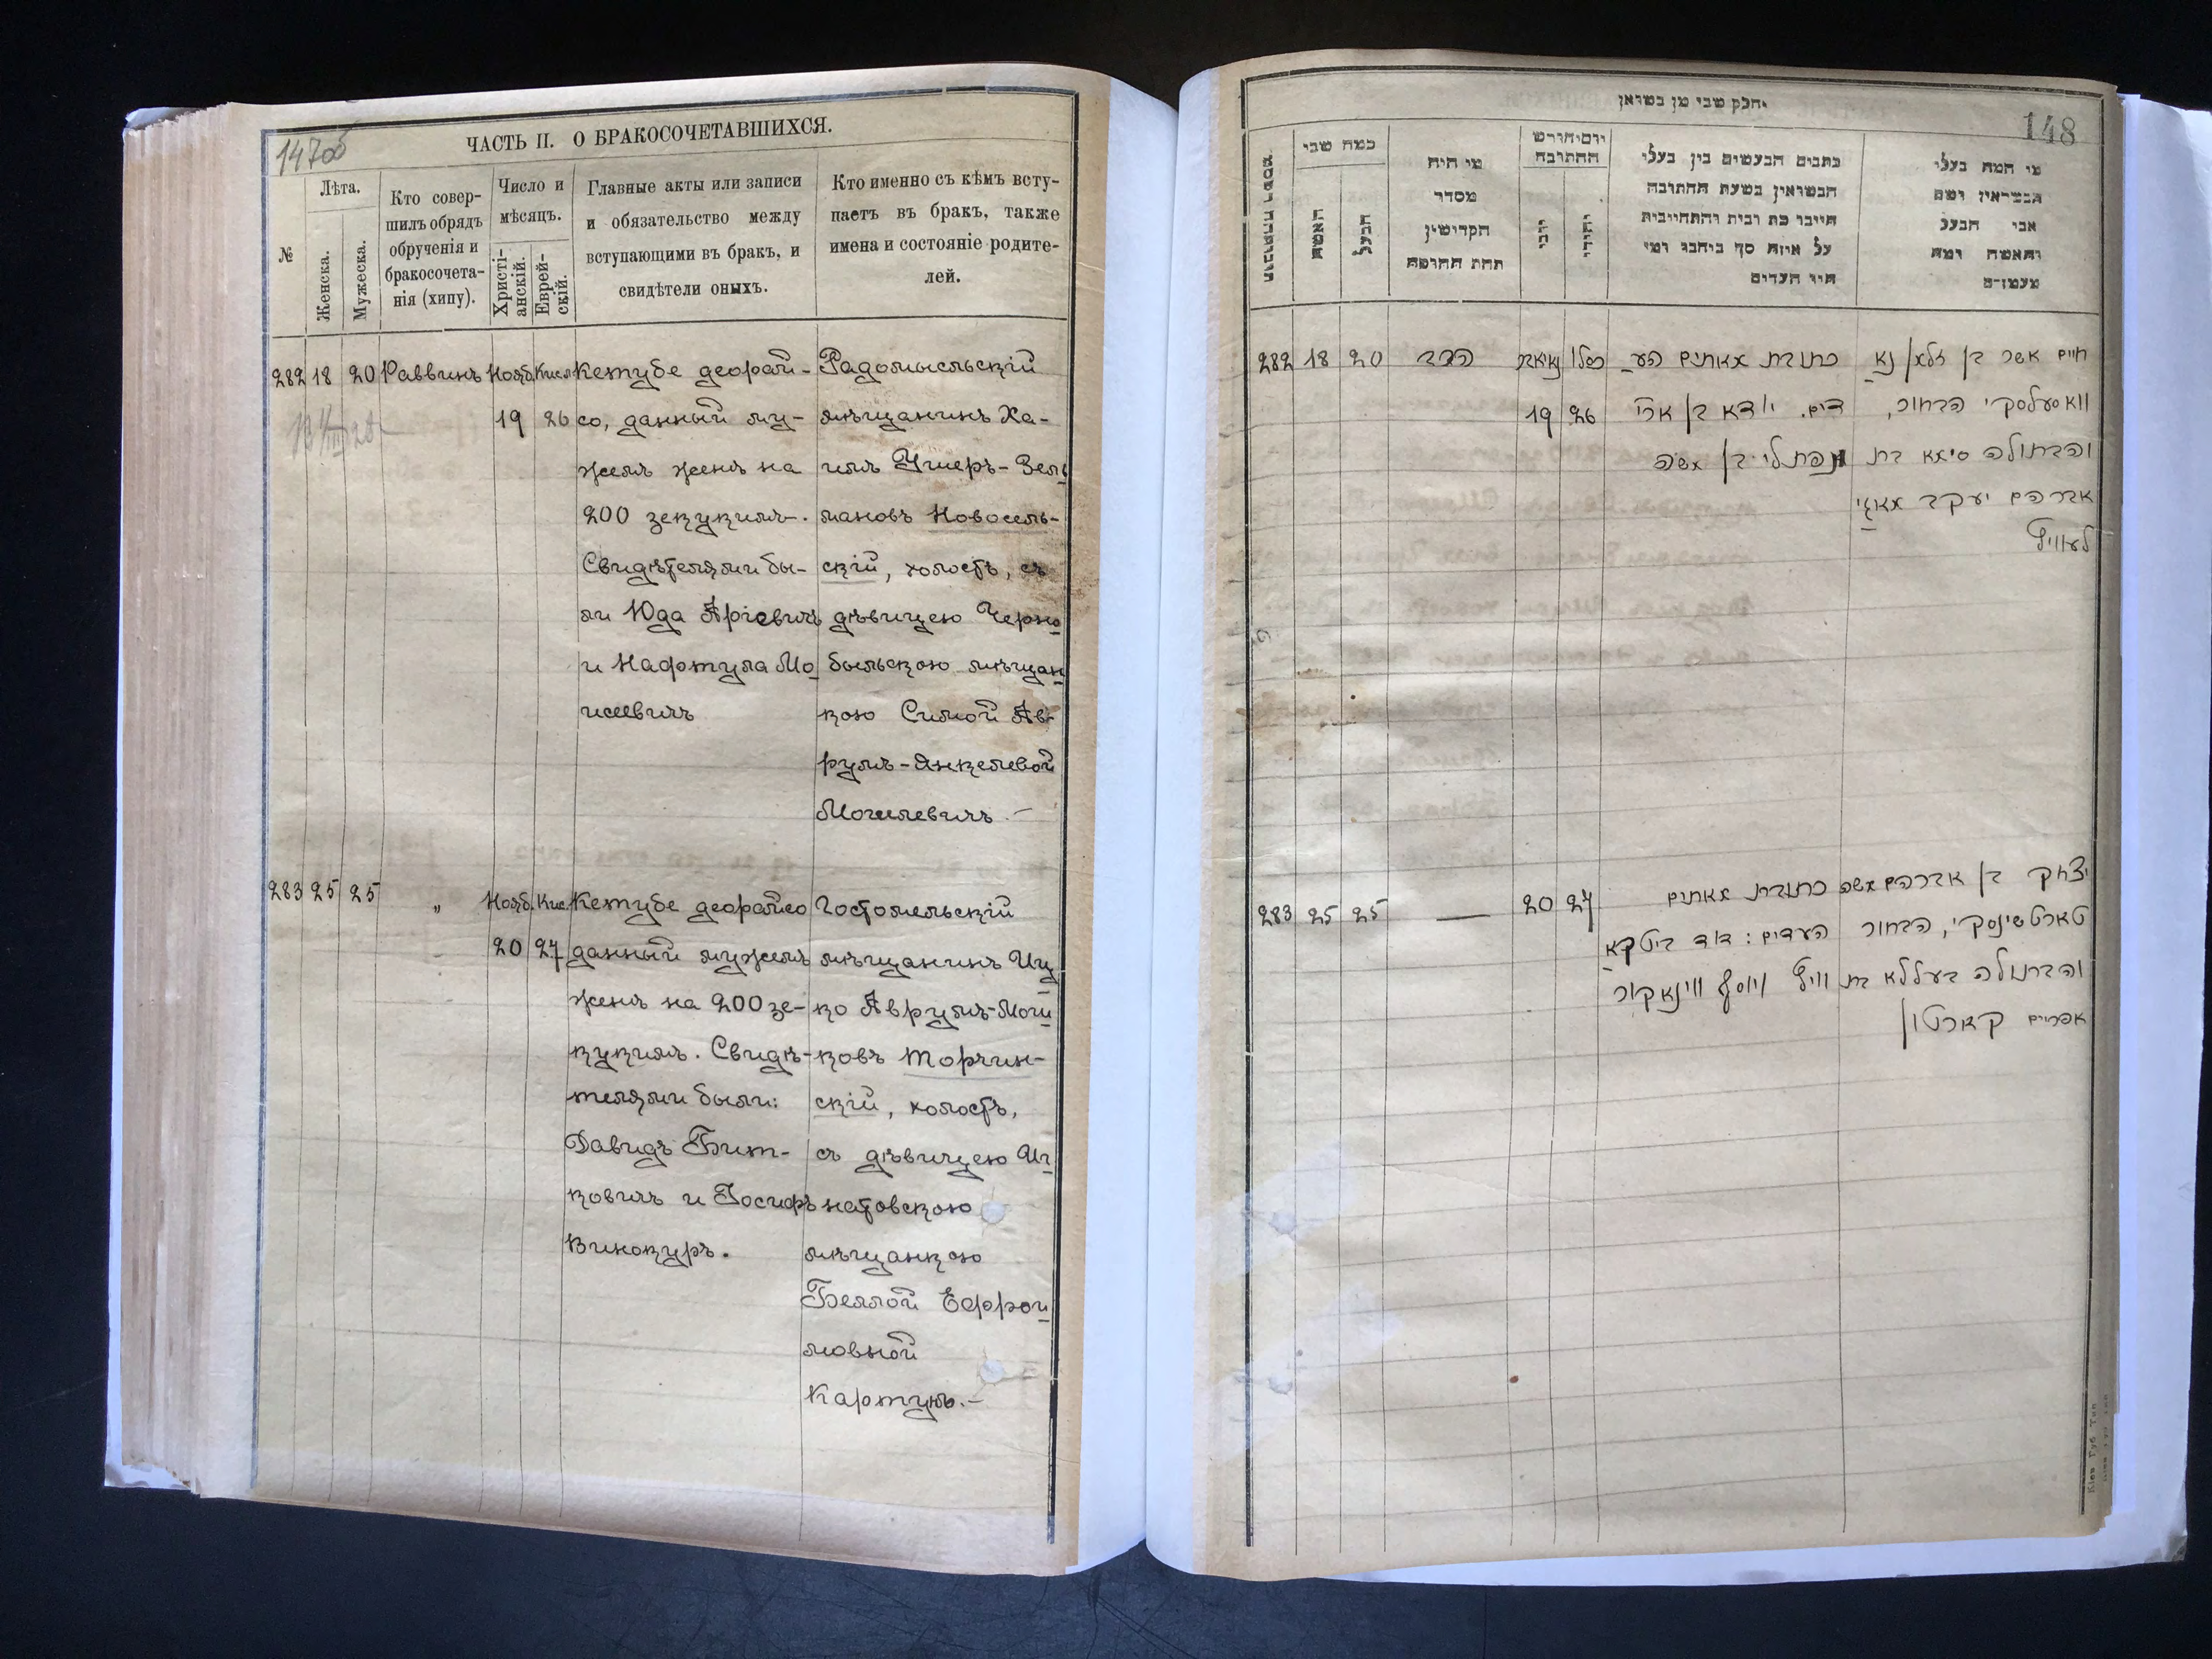 147об
ЧАСТЬ II. О БРАКОСОЧЕТАВШИХСЯ.
№
Лѣта.
Женска.
Мужеска.
Кто совер-
шилъ обрядъ
обрученія и
бракосочета-
нія (хипу).
Число и
мѣсяцъ.
Христі-
анскій.
Еврей-
скій.
Главные акты или записи
и обязательство между
вступающими въ бракъ, и
свидѣтели оныхъ.
Кто именно съ кѣмъ всту-
паетъ въ бракъ, также
имена и состояніе родите-
лей.
282 18 20 Раввинъ Нояб. Кисл
19 26
Кетубе деорай-
со, данный му-
жемъ женѣ на
200 зекукимъ.
Свидѣтелями бы-
ли Юда Аріевичъ
и Нафтула Мо
исеевичъ
Радомысльскій
мѣщанинъ Ха-
имъ Ушеръ-Зель
мановъ Новосель-
скій, холостъ, съ
дѣвицею Черно
быльскою мѣщан
кою Симой Ав-
румъ-Янкелевой
Могилевичъ
283 25 25 „ Нояб. Кис.
20 27
Кетубе деорайсо
данный мужемъ
женѣ на 200 зе-
кукимъ. Свидѣ-
телями были:
Давидъ Бит-
ковичъ и Іосифъ
Винокуръ.
Гостомельскій
мѣщанинъ Иц
ко Аврумъ-Мош
ковъ Торчин-
скій, холостъ,
съ дѣвицею Иг
натовскою
мѣщанкою
Беллой Ефрои
мовной
Картунъ.
148
חלק שני מן נשואין
כמה שני
האשה
הבעל
מי היה
מסדר
הקדושין
תחת החופה
יום וחודש
החתונה
יוני
יהודי
כתבים הנעשים בין בעלי
הנשואין בשעת החתונה
היינו כת ובית והתחייבות
על איזה סך ביניהם ומי
היו העדים
מי המה בעלי
הנשואין ושם
אבי הבעל
והאשה ומה
מעמדם
282 18 20 הרב נאיאב כסלו
19 26
כתובת מאתים הע
דים. יודא בן ארי
נפתלי בן משה
חיים אשר בן זלמן נא
וואסעלסקי הבחור,
והבתולה סימא בת
אברהם יעקב מאגי
לעוויץ
283 25 25 — 20 27
כתובת מאתים
העדים: דוד ביטקא
וויץ ויוסף ווינאקור
יצחק בן אברהם משה
טארטשינסקי, הבחור
והבתולה בעללא בת
אפרים קארטון
Кіев Губ Тип